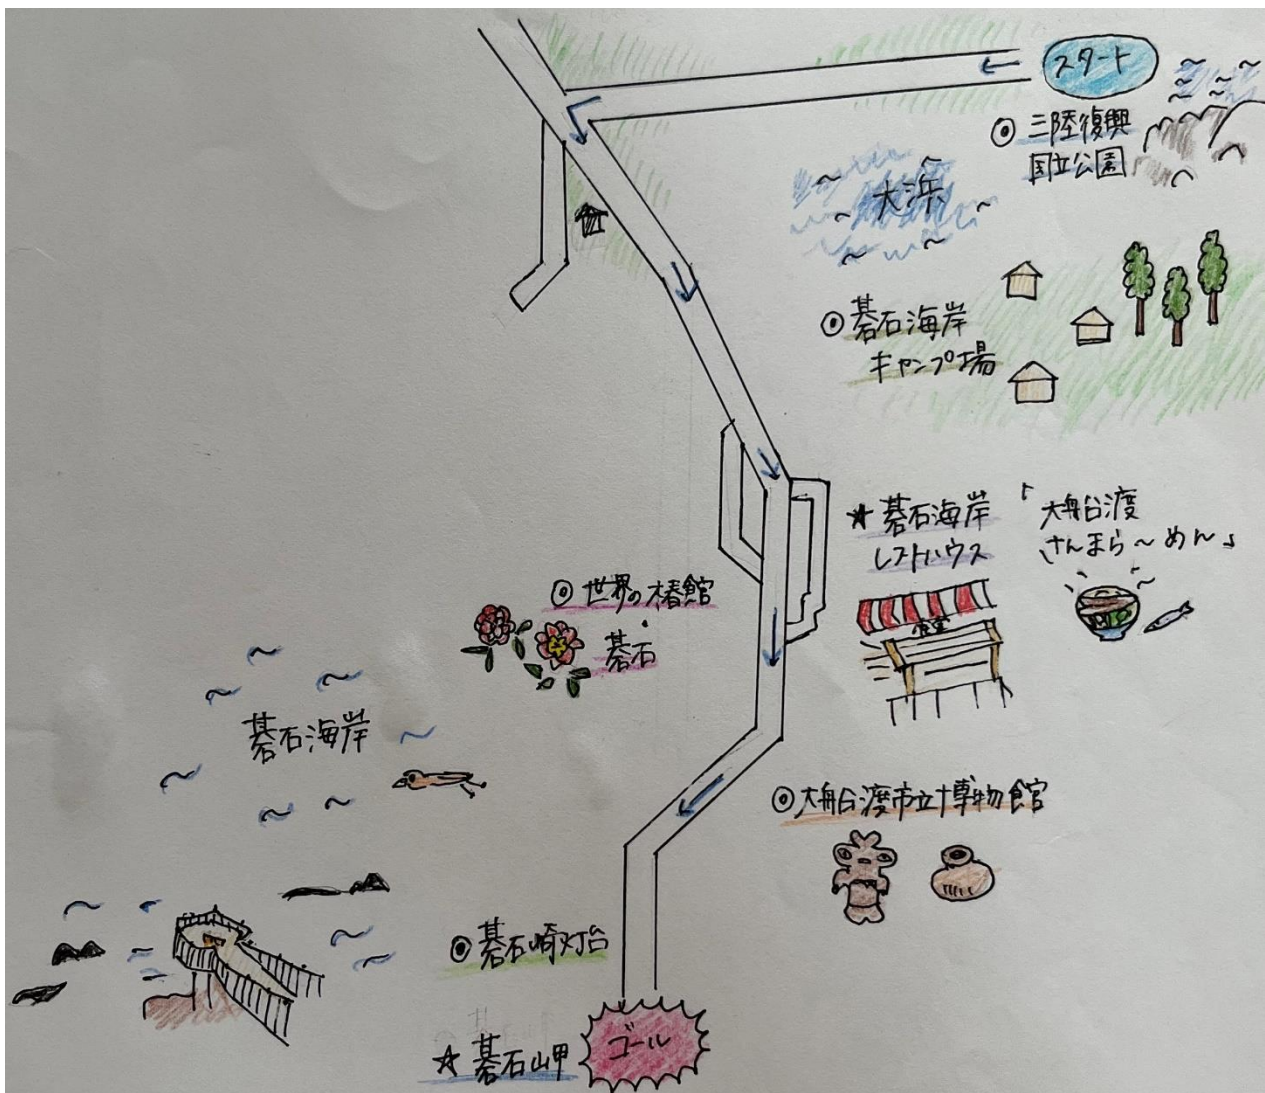 スタート
◎三陸復興
国立公園
大浜
◎碁石海岸
キャンプ場
★碁石海岸
レストハウス
「大船渡
さんまら〜めん」
食堂
◎世界の椿館
・
碁石
碁石海岸
◎大船渡市立博物館
◎碁石崎灯台
☆碁石岬
ゴール